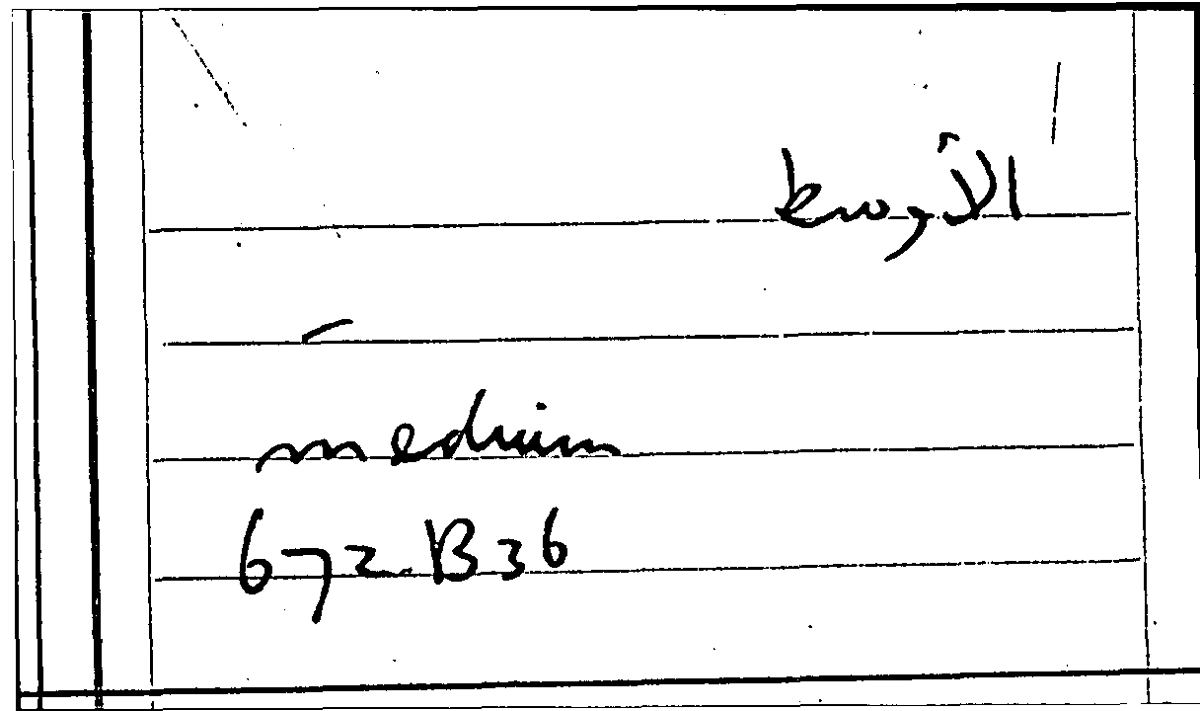 الأوسط
medium
672.B36